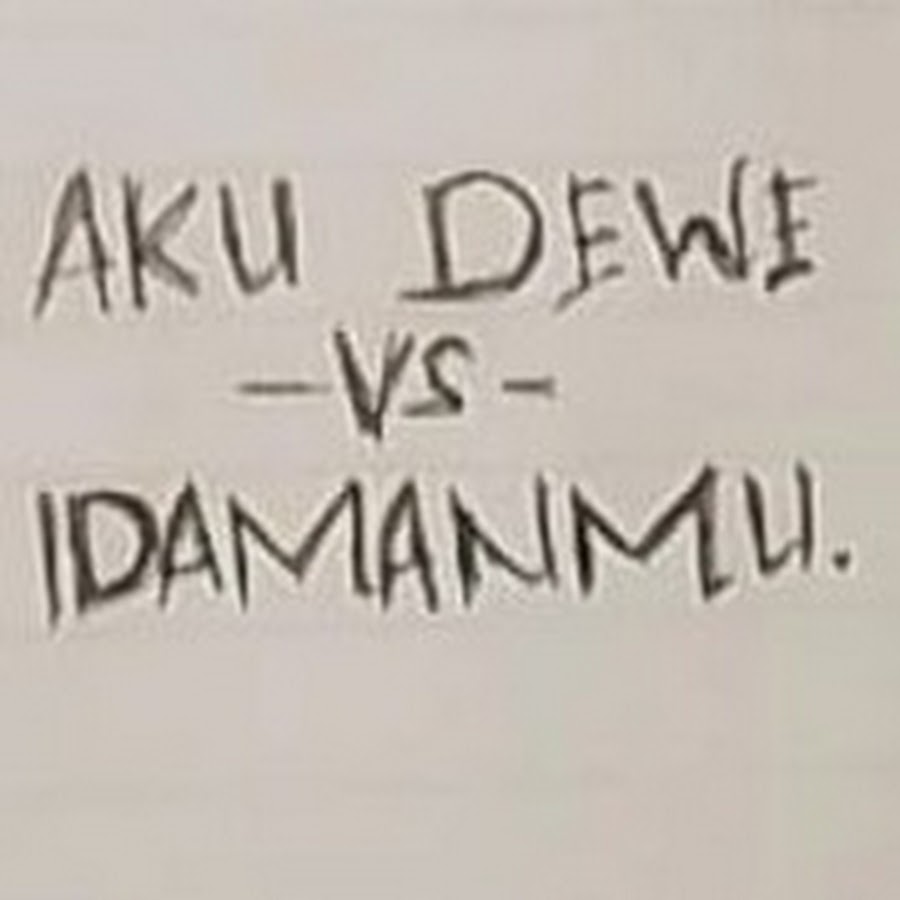 AKU DEWE
-VS-
IDAMANMU.